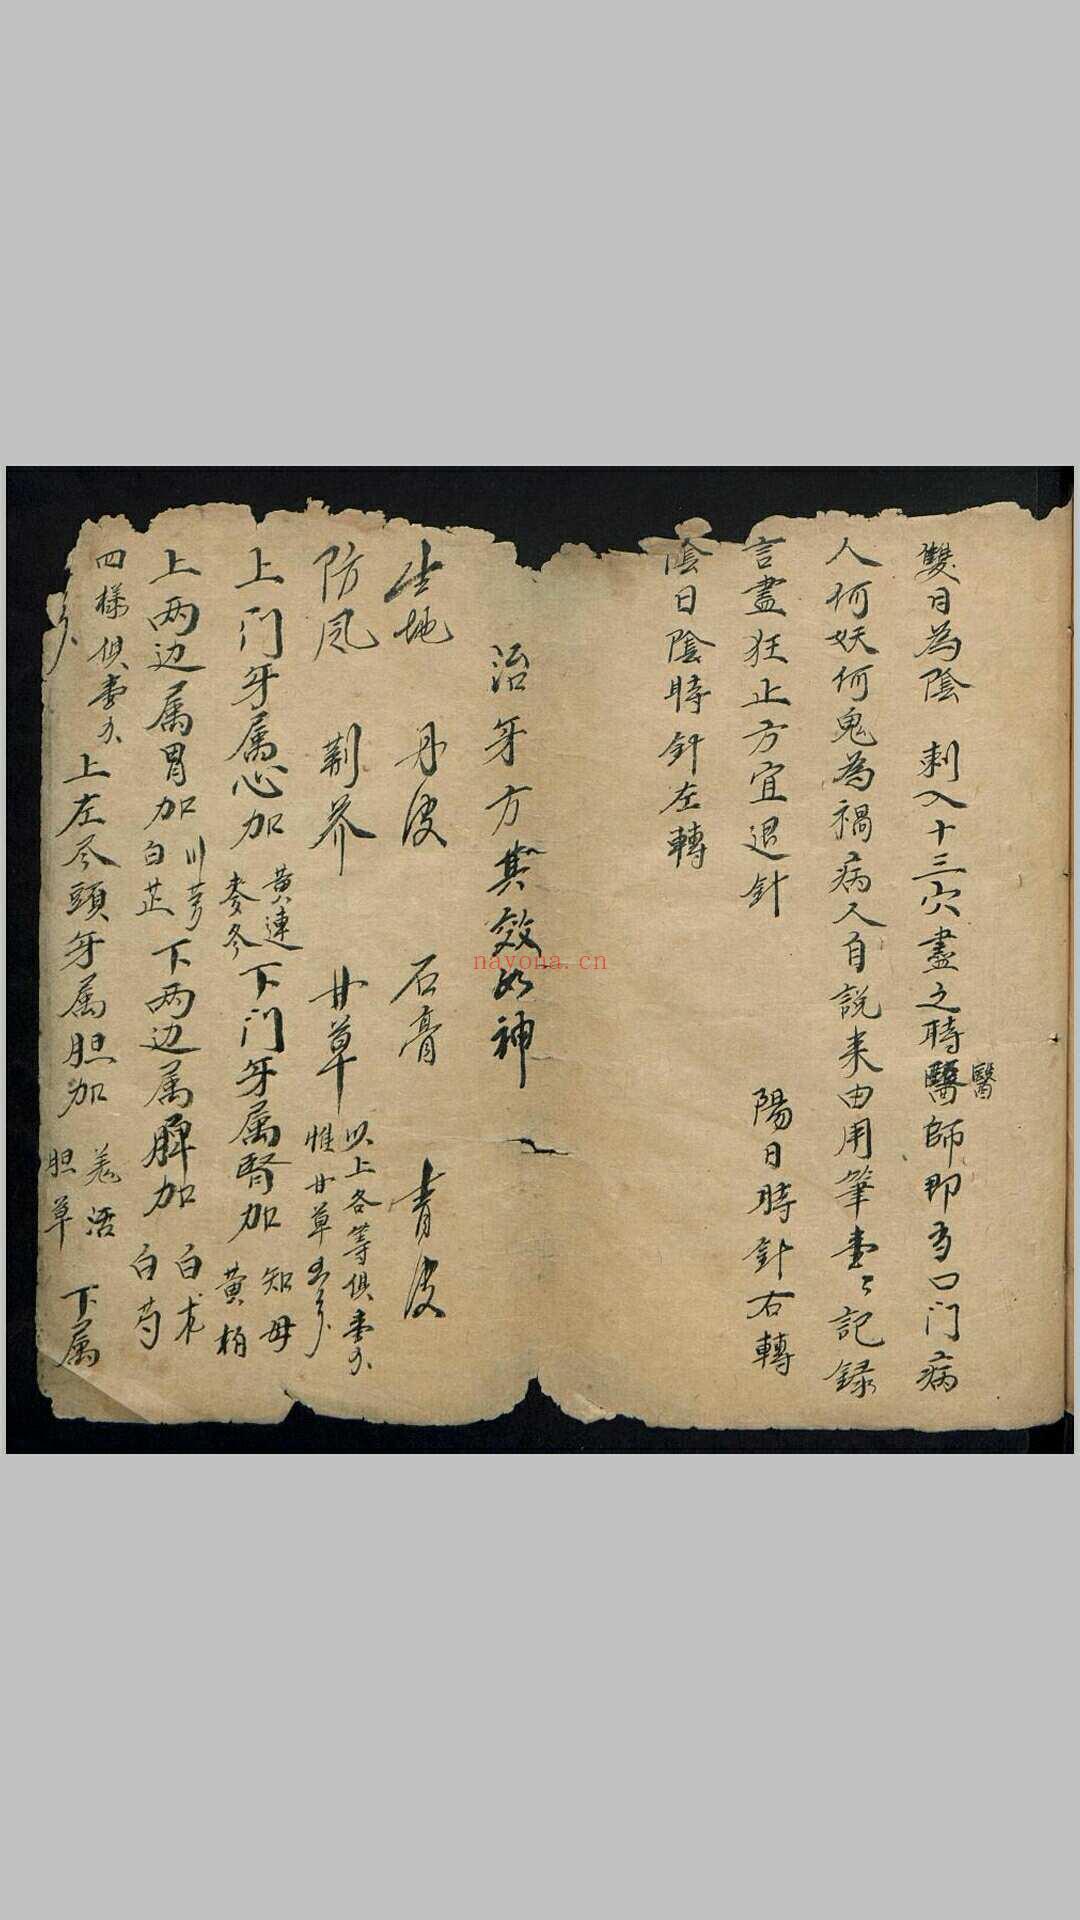 雙日為陰　刺入十三穴盡之時醫師即為口门病
醫
人何妖何鬼為禍病人自説来由用筆壹々記録
言盡狂止方宜退針　陽日時針右轉
陰日陰時針左轉
治牙方其效如神
生地　丹皮　石膏　青皮
防风　荆芥　甘草　以上各等俱壹
惟甘草五分
上门牙属心加　黄連
麥冬　下门牙属腎加　知母
黄柏
上两边属胃加　川芎
白芷　下两边属脾加　白术
白芍
四樣俱壹　上左尽頭牙属胆加　羌活
胆草　下属
nayona.cn